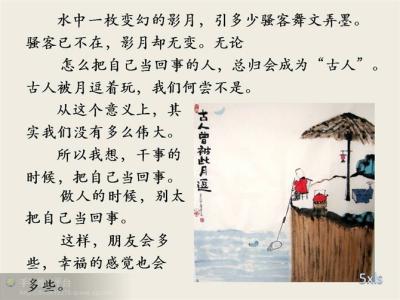 水中一枚变幻的影月，引多少骚客舞文弄墨。
骚客已不在，影月却无变。无论
怎么把自己当回事的人，总归会成为“古人”。
古人被月逗着玩，我们何尝不是。
从这个意义上，其
实我们没有多么伟大。
所以我想，干事的
时候，把自己当回事。
做人的时候，别太
把自己当回事。
这样，朋友会多
些，幸福的感觉也会
多些。
古人曾被此月逗
5xls